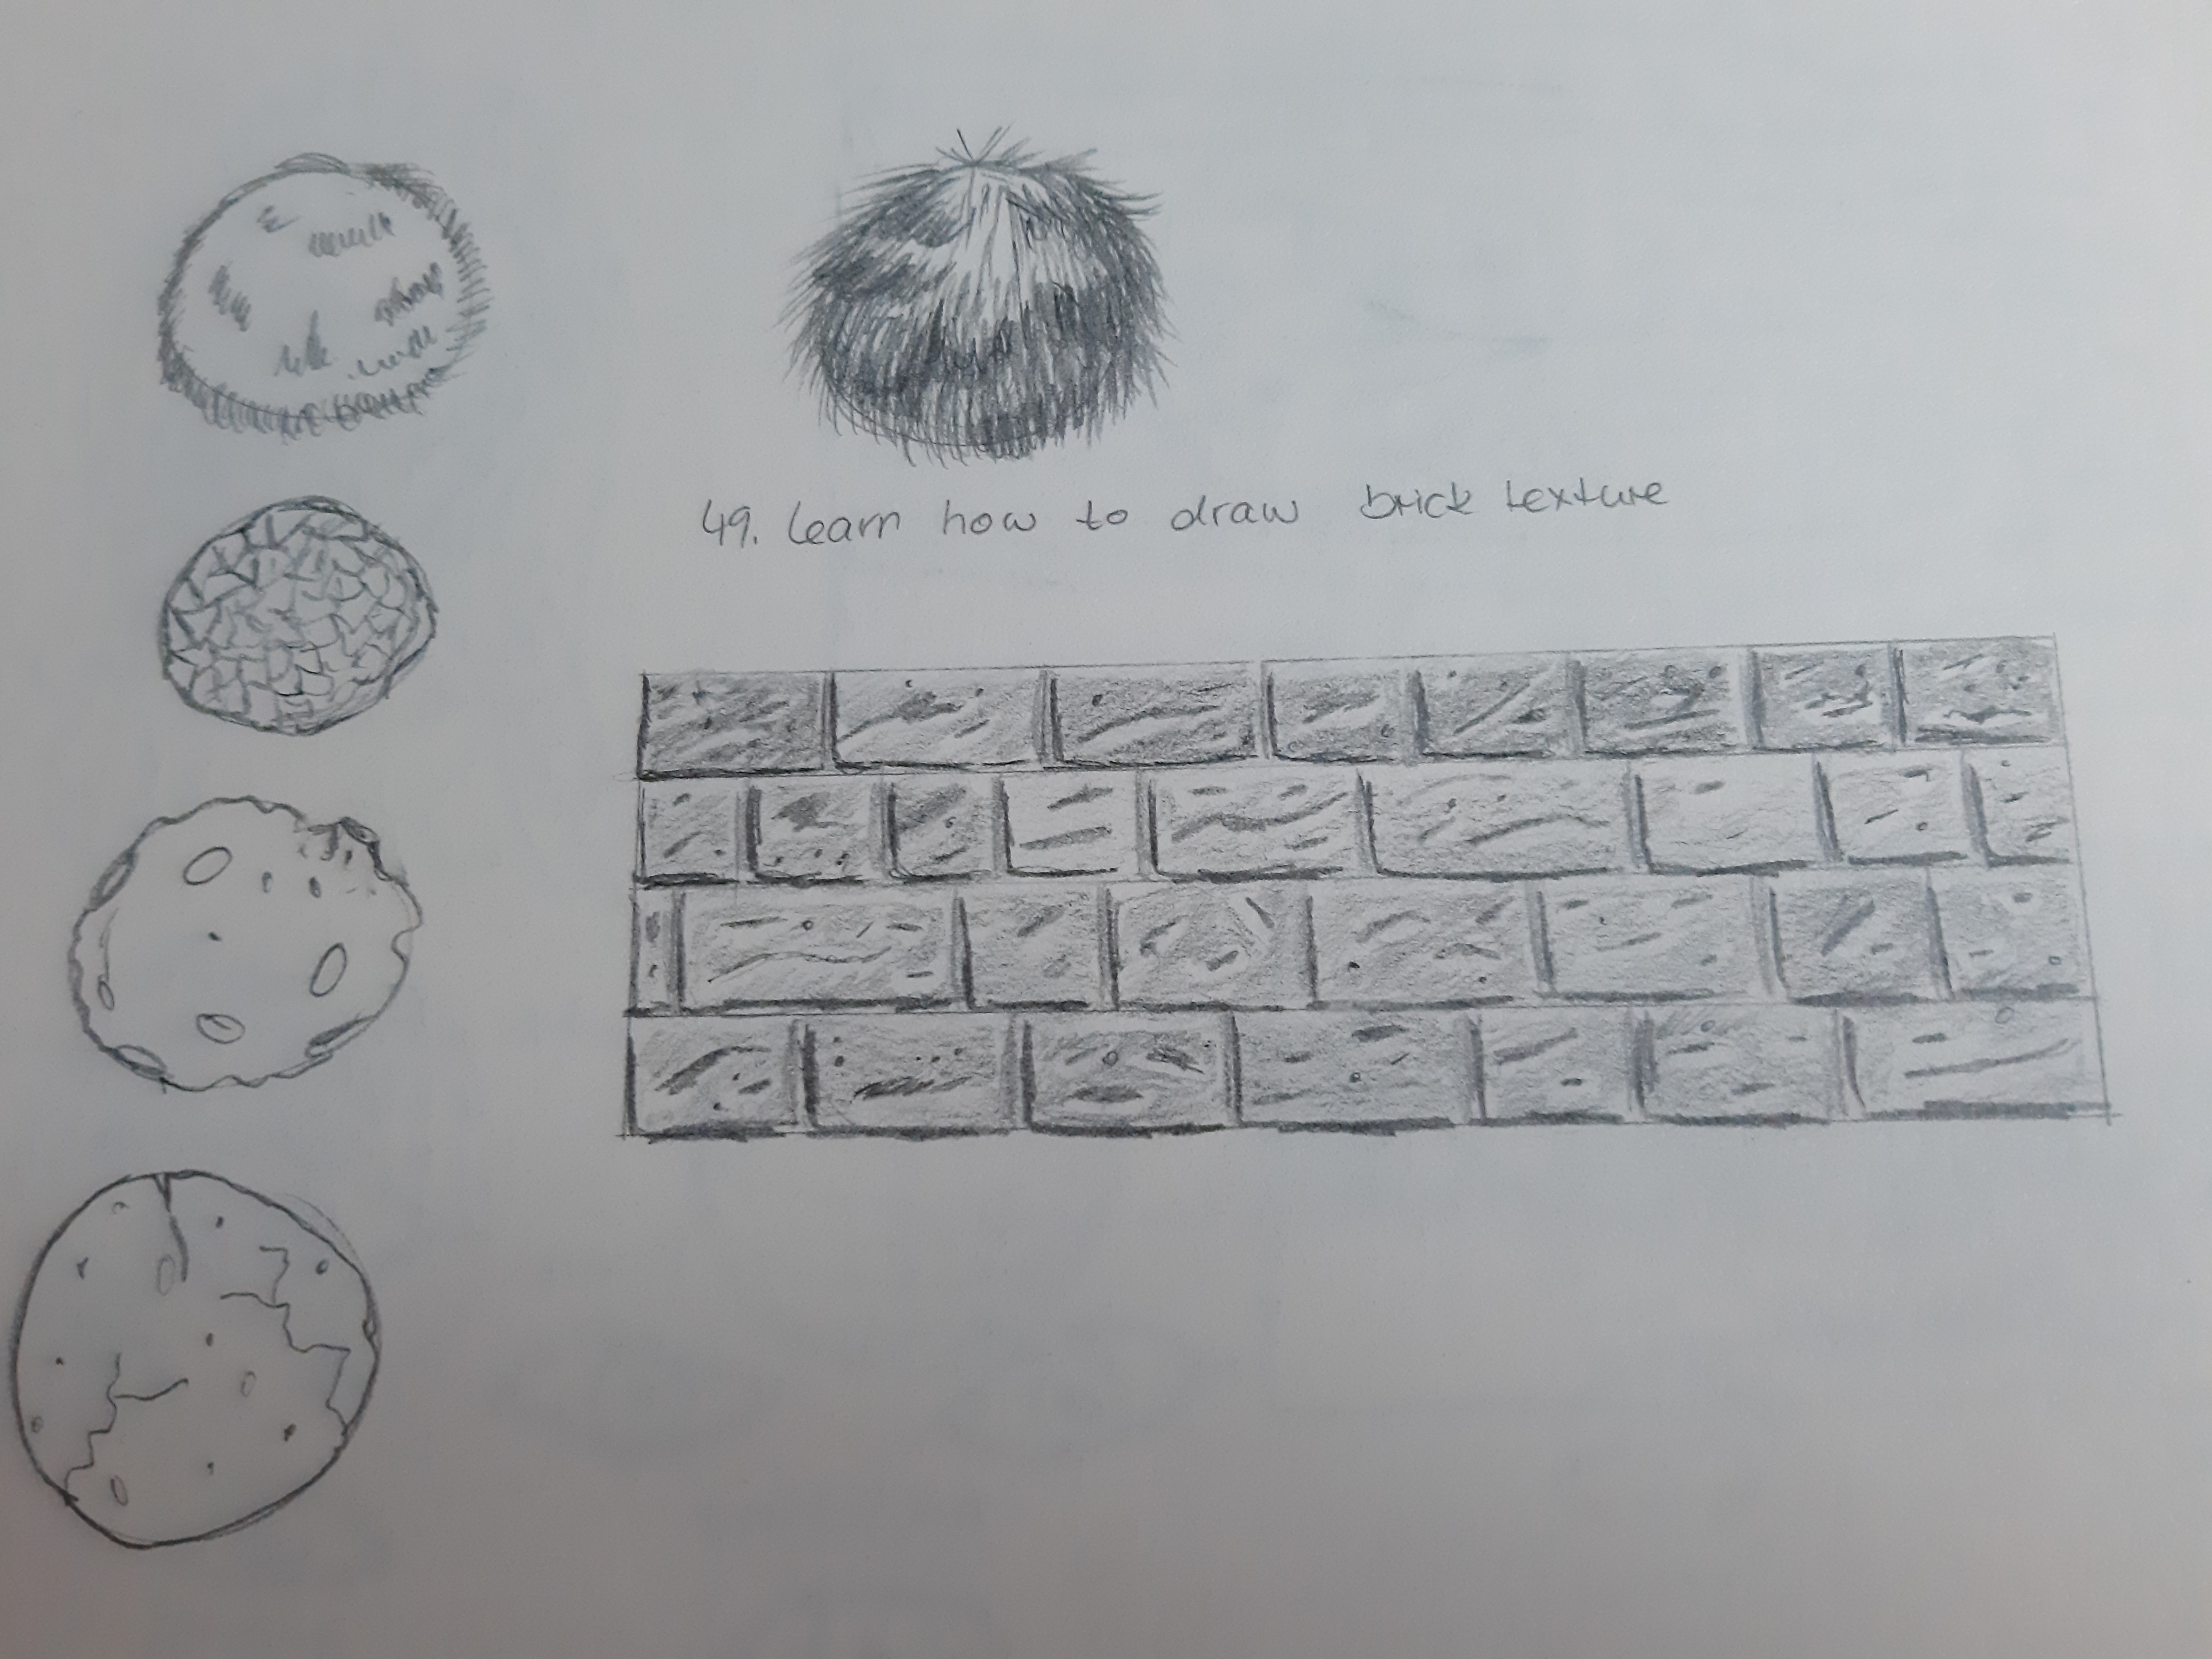 49. Learn how to draw brick texture